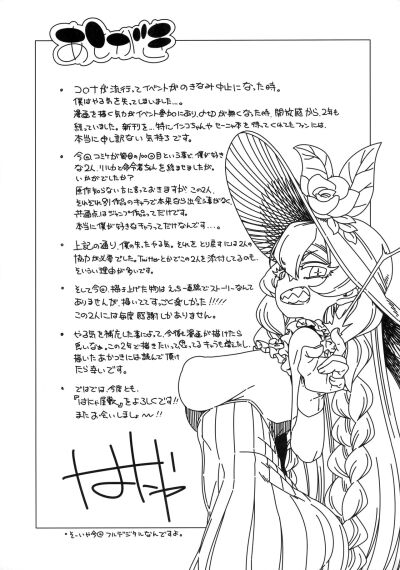 あとがき
・コロナが流行ってイベントがのきなみ中止になった時。
僕はやる気を失ってしまいました…。
漫画を描く気力がイベント参加にあり、〆切が無くなった時、開放感から、2年も
経っていました。新刊を…特にインコちゃんやセーニャ本を待ってくれてたファンには、
本当に申し訳ない気持ちです。
・今回コミケが節目の100回目という事で、僕が好き
な2人、リルカと命を絡ませましたが、
いかがでしたか？
原作知らない方に言っておきますが この2人、
それぞれ別作品のキャラで本来なら出会う事がなく
共通点はジャンプ作品ってだけです。
本当に僕が好きなキャラってだけなんです…。
・上記の通り、僕の失ったやる気。それをとり戻すには2人の
協力が必要でした。Twitterとかでこの2人を添付してるのも、
そういう理由が多いです。
・そして今回、描き上げた物はエッチ一直線でストーリーなんて
ありませんが、描いてて、すっごく楽しかった!!!!
この2人には毎度感謝しかありません。
・やる気を補充した事によって、今後も漫画が描けたら
良いなぁ。この2年で描きたいって思ってるキャラも増えたし、
描いたあかつきには読んで頂け
たら幸いです。
・ではでは、今度とも、
『はにゃ屋敷』をよろしくです!!
またお会いしましょ〜!!
・そーいや今回フルデジタルなんですよ。